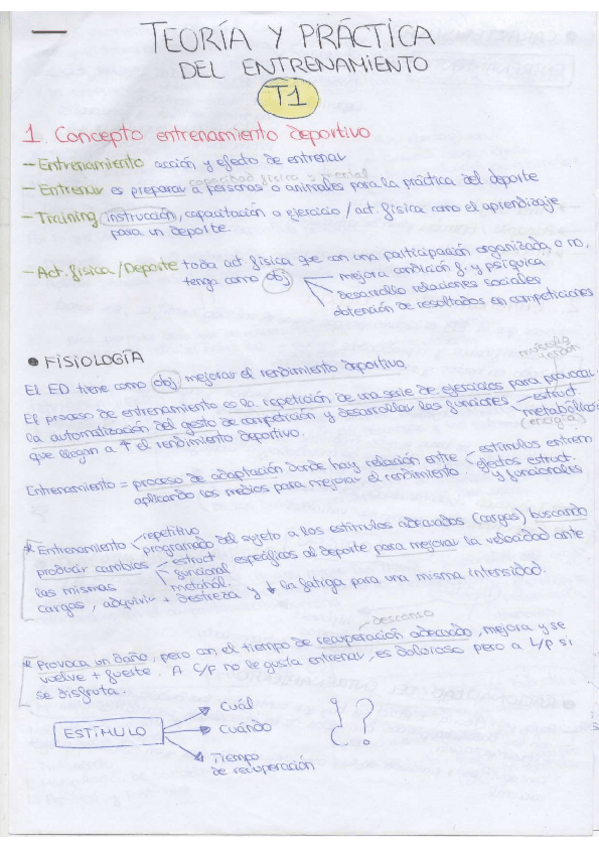 TEORÍA Y PRÁCTICA
DEL ENTRENAMIENTO
T1
1. Concepto entrenamiento deportivo
- Entrenamiento acción y efecto de entrenar
capacidad física y mental
- Entrenar es preparar a personas o animales para la práctica del deporte
- Training instrucción, capacitación o ejercicio / act. física como el aprendizaje
para un deporte.
- Act. física / Deporte toda act. física que con una participación organizada, o no,
tenga como obj mejora condición f. y psíquica
desarrollo relaciones sociales
obtención de resultados en competiciones
• FISIOLOGÍA
El ED tiene como obj mejorar el rendimiento deportivo
El proceso de entrenamiento es la repetición de una serie de ejercicios para provocar
la automatización del gesto de competición y desarrollar las funciones estruct.
metabólicas
(energía)
que llegan a ↑ el rendimiento deportivo.
Entrenamiento = proceso de adaptación donde hay relación entre estímulos entrem
efectos estruct.
y funcionales
aplicando los medios para mejorar el rendimiento
* Entrenamiento repetitivo
programado del sujeto a los estímulos adecuados (cargas) buscando
producir cambios estruct
funcional
metaból.
específicos al deporte para mejorar la velocidad ante
las mismas
cargas, adquirir + destreza y ↓ la fatiga para una misma intensidad.
descanso
* Provoca un daño, pero con el tiempo de recuperación adecuado, mejora y se
vuelve + fuerte. A C/P no le gusta entrenar, es doloroso pero a L/P si
se disfruta.
ESTÍMULO
Cuál
Cuándo
Tiempo
de recuperación
¿?